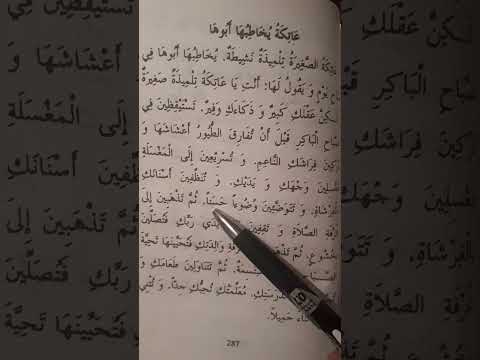 عَاتِكَةُ يُخَاطِبُهَا أَبُوهَا
الصَّغِيرَةُ تِلْمِيذَةٌ نَشِيطَةٌ. يُخَاطِبُهَا أَبُوهَا فِي
وَ يَقُولُ لَهَا: أَنْتِ يَا عَاتِكَةُ تِلْمِيذَةٌ صَغِيرَةٌ
عَقْلَكِ كَبِيرٌ وَ ذَكَاءَكِ وَفِيرٌ. تَسْتَيْقِظِينَ فِي
الْبَاكِرِ قَبْلَ أَنْ تُفَارِقَ الطُّيُورُ أَعْشَاشَهَا وَ
فِرَاشَكِ النَّاعِمَ. وَ تُسْرِعِينَ إِلَى الْمَغْسَلَةِ
وَجْهَكِ وَ يَدَيْكِ. وَ تُنَظِّفِينَ أَسْنَانَكِ
وَ تَتَوَضَّئِينَ وُضُوءاً حَسَناً. ثُمَّ تَذْهَبِينَ إِلَى
الصَّلَاةِ وَ تَقِفِينَ رَبِّكِ فَتُصَلِّينَ
وَالِدَتِكِ فَتُحَيِّينَهَا تَحِيَّةَ
ثُمَّ تَتَنَاوَلِينَ طَعَامَكِ وَ
مُعَلِّمَتُكِ تُحِبُّكِ حِبّاً. وَ تُثْنِي
جَمِيلاً.
287